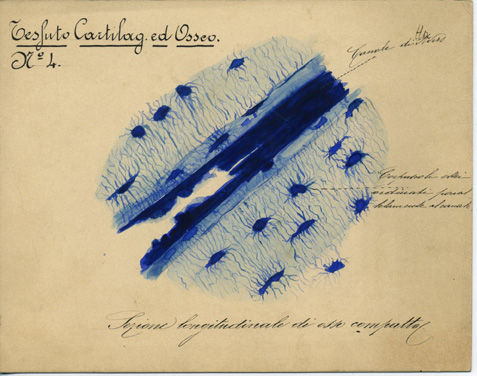 Tessuto Cartilag. ed Osseo.
Nº 4.
Canale di Havers
Corpuscoli
ordinate paral
lelamente al canale
Sezione longitudinale di osso compatto